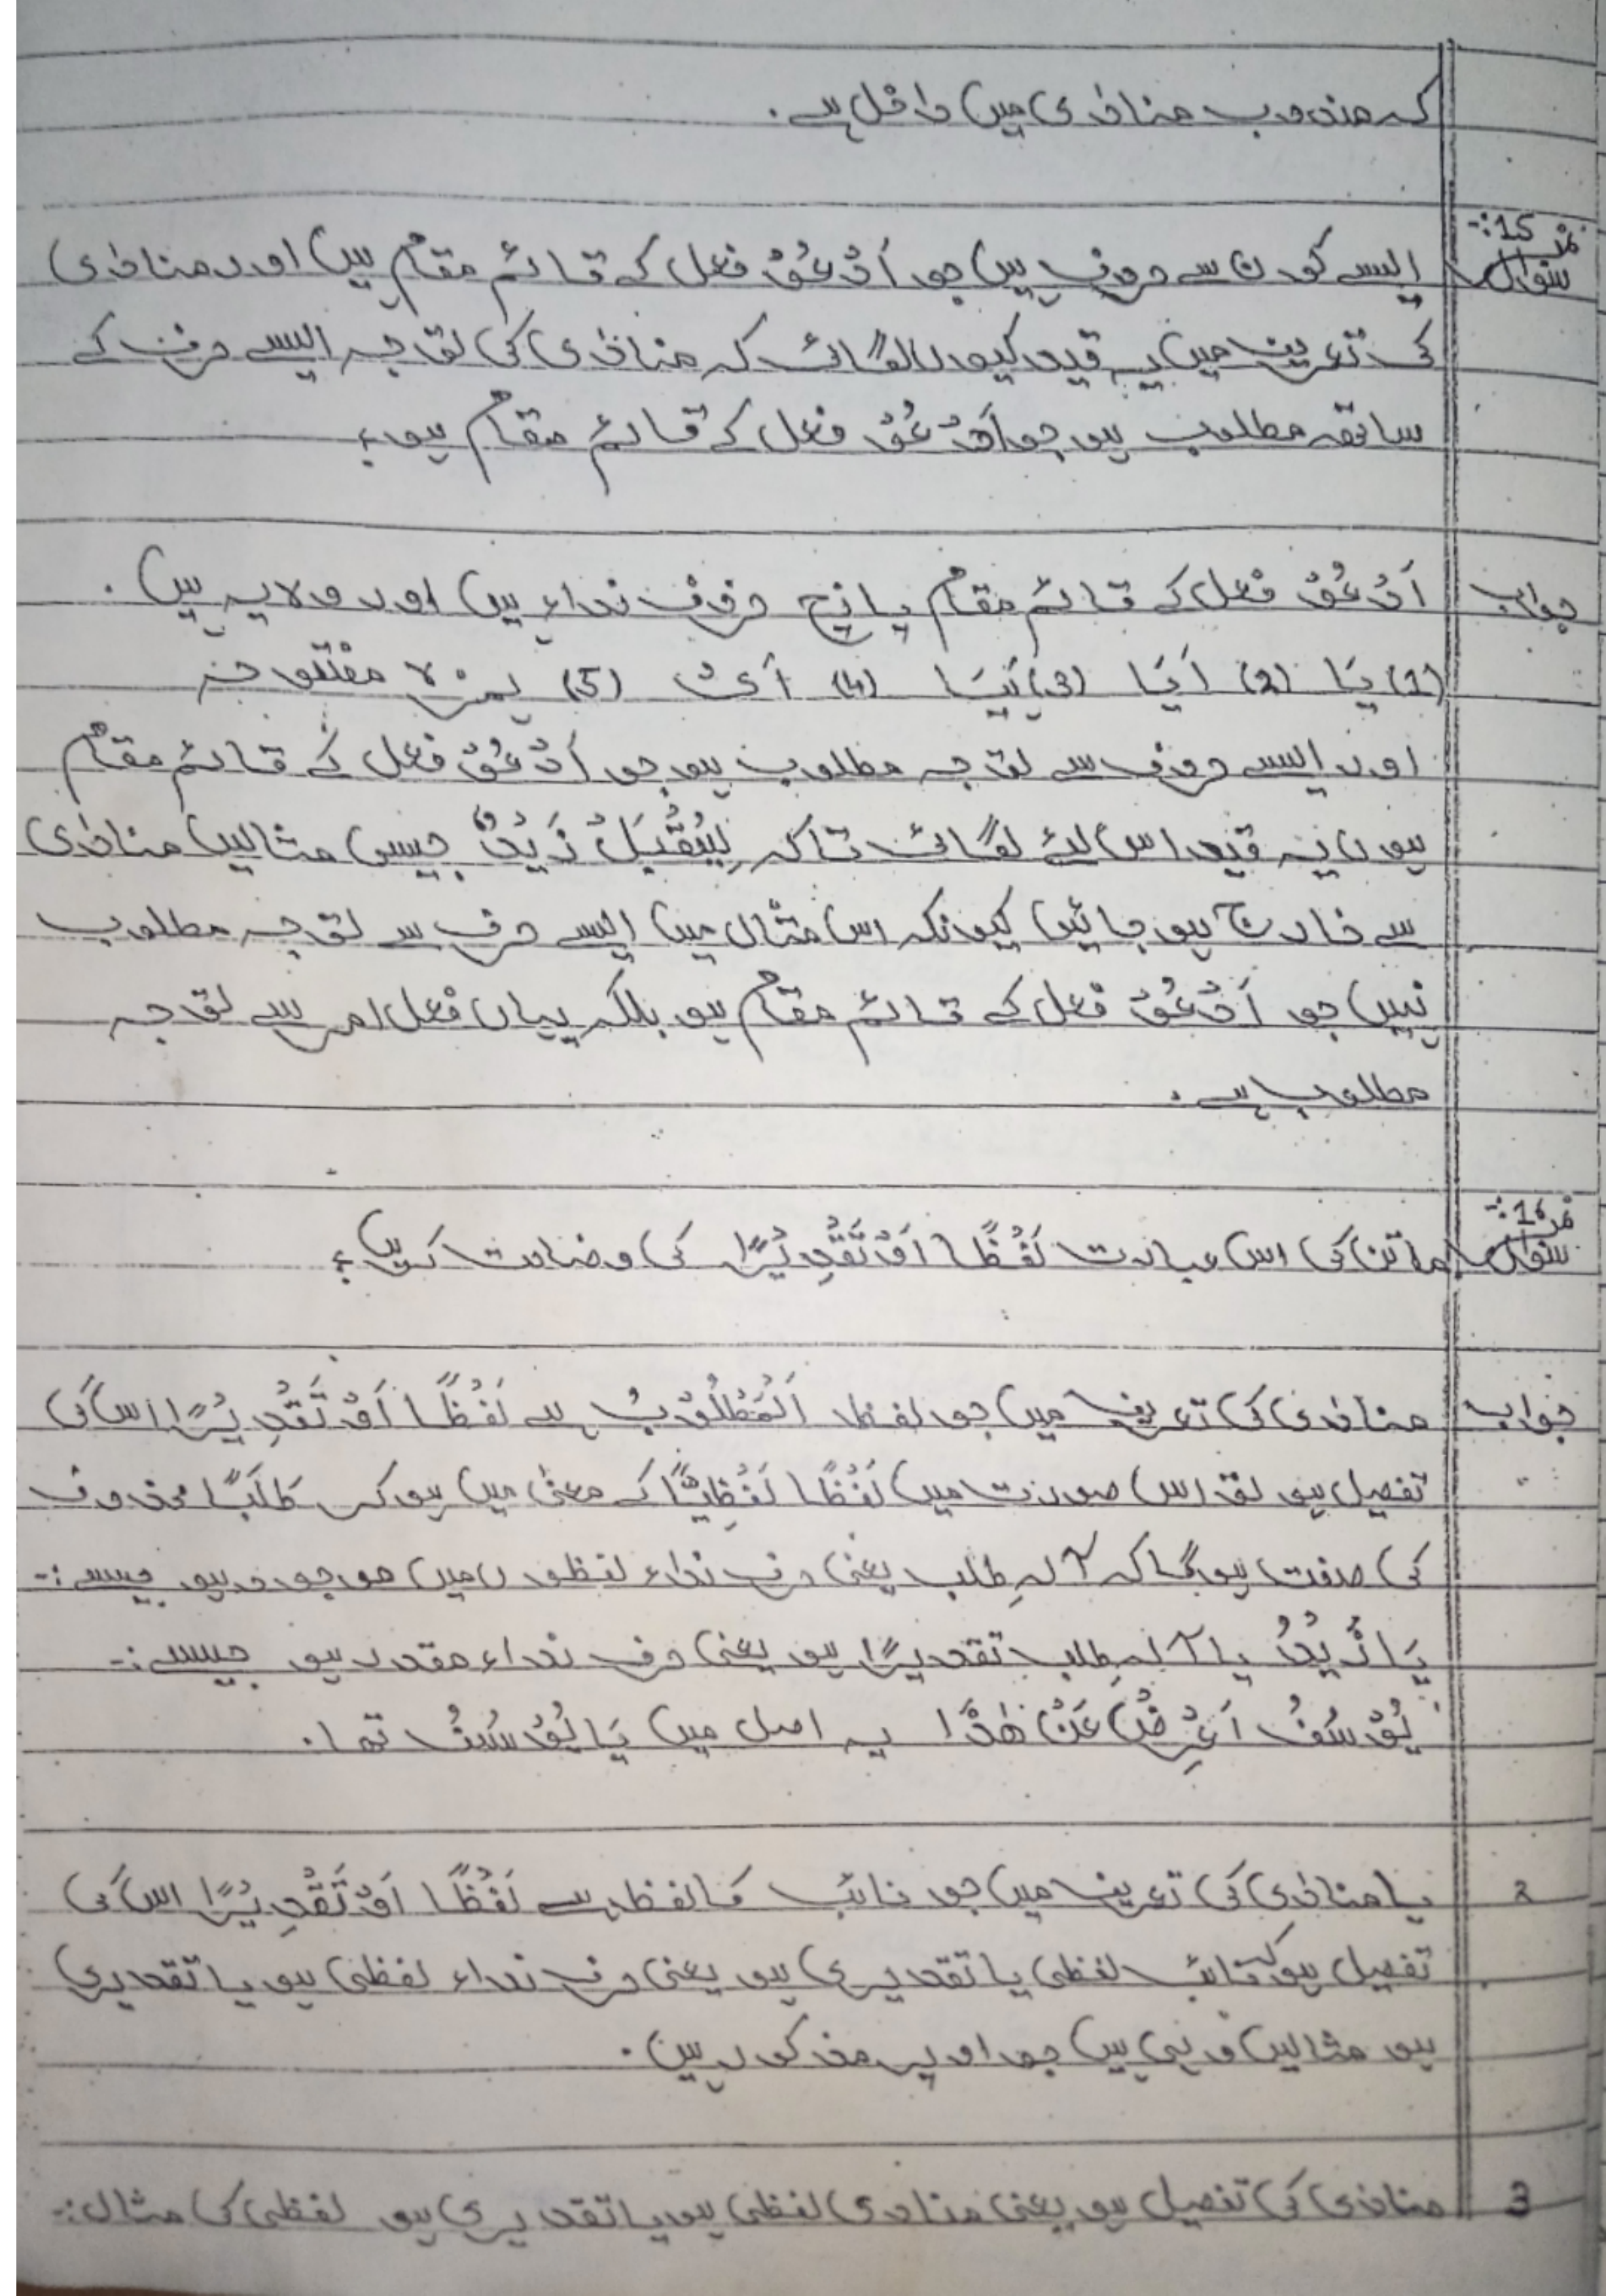 کہ مندوب منادٰی میں داخل ہے۔
سوال نمبر 15:- ایسے کون سے حروف ہیں جو اَدْعُوْ فعل کے قائم مقام ہیں اور منادٰی
کی تعریف میں یہ قید کیوں لگائی کہ منادٰی کی توجہ ایسے حرف کے
ساتھ مطلوب ہو جو اَدْعُوْ فعل کے قائم مقام ہو؟
جواب اَدْعُوْ فعل کے قائم مقام پانچ حروف نداء ہیں اور وہ یہ ہیں۔
(1) یَا (2) اَیَا (3) ہَیَا (4) اَیْ (5) ہمزہ مفتوحہ
اور ایسے حروف سے توجہ مطلوب ہو جو اَدْعُوْ فعل کے قائم مقام
ہوں یہ قید اس لئے لگائی تاکہ لِیُقْبَلْ زَیْدٌ جیسی مثالیں منادٰی
سے خارج ہو جائیں کیونکہ اس مثال میں ایسے حرف سے توجہ مطلوب
نہیں جو اَدْعُوْ فعل کے قائم مقام ہو بلکہ یہاں فعل امر سے توجہ
مطلوب ہے۔
سوال نمبر 16:- ماتن کی اس عبارت لَفْظًا اَوْ تَقْدِیْرًا کی وضاحت کریں؟
جواب منادٰی کی تعریف میں جو لفظ اَلْمَطْلُوْبُ ہے لَفْظًا اَوْ تَقْدِیْرًا اس کی
تفصیل ہو تو اس صورت میں لَفْظًا لَفْظِیًّا کے معنٰی میں ہو کر طَلَبًا محذوف
کی صفت ہوگا کہ آلہِ طلب یعنی حرف نداء لفظوں میں موجود ہو جیسے:-
یَا زَیْدُ یا آلہِ طلب تقدیرًا ہو یعنی حرف نداء مقدر ہو جیسے:-
یُوْسُفُ اَعْرِضْ عَنْ ھٰذَا یہ اصل میں یَا یُوْسُفُ تھا۔
2 یا منادٰی کی تعریف میں جو نائب کا لفظ ہے لَفْظًا اَوْ تَقْدِیْرًا اس کی
تفصیل ہو کہ نائب لفظی یا تقدیری ہو یعنی حرف نداء لفظی ہو یا تقدیری
ہو مثالیں وہی ہیں جو اوپر مذکور ہیں۔
3 منادٰی کی تفصیل ہو یعنی منادٰی لفظی ہو یا تقدیری ہو لفظی کی مثال:-